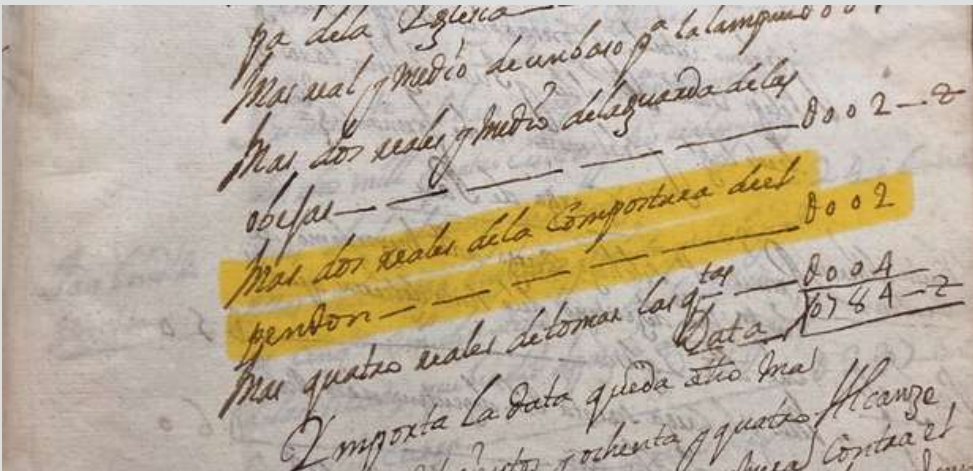 pa dela Iglesia
Mas real y medio de un baso pª la lampara
Mas dos reales y medio dela guarda de las
obejas — — — — — — 0002—2
Mas dos reales dela Compostura deel
pendon — — — — — 0002
Mas quatro reales de tomar las qtas — 0004
Data 0784—2
Importa la data queda dho ma
ochenta y quatro Alcanze
Contra el